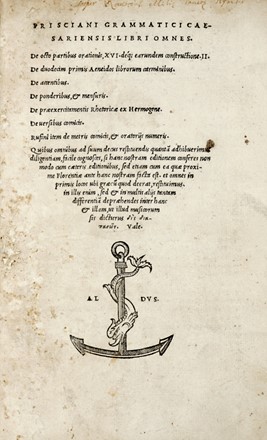 PRISCIANI GRAMMATICI CAE-
SARIENSIS LIBRI OMNES.
De octo partibus orationis, XVI. deq; earundem constructione. II.
De duodecim primis Aeneidos librorum carminibus.
De accentibus.
De ponderibus, & mensuris.
De praeexercitamentis Rhetoricæ ex Hermogene.
De uersibus comicis.
Rufini item de metris comicis, & oratorijs numeris.
Quibus omnibus ad suum decus restituendis quantã adhibuerimus
diligentiam, facile cognoscet, si hanc nostram editionem conferes non
modo cum cæteris editionibus, sed etiam cum ea quæ proxi-
me Florentiæ ante hanc nostram facta est. et omneis in
primis locos ubi græcũ quod deerat, restituimus.
in illis enim, sed & in multis alijs tantam
differentiã deprahendes inter hanc
& illam, ut illud musicorum
sis dicturus
Vale.
AL DVS.